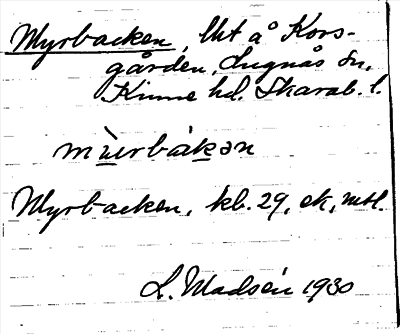 Myrbacken, lht å Kors-
gården, Lugnås sn,
Kinne hd. Skarab. l.
mùrbakən
Myrbacken, kb. 29, ek, mtl.
L. Madsén 1930